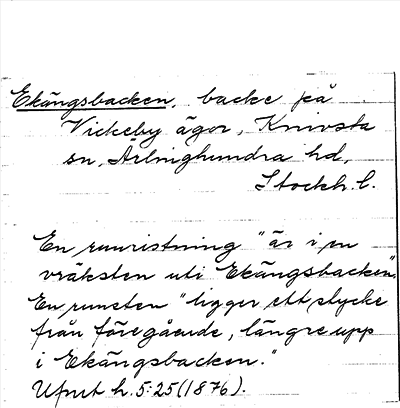 Ekängsbacken, backe på
Vickeby ägor, Knivsta
sn, Ärlinghundra hd,
Stockh. l.
En runristning "är i en
vräksten uti Ekängsbacken".
En runsten "ligger ett stycke
från föregående, längre upp
i Ekängsbacken."
Ufmt h. 5:25 (1876).